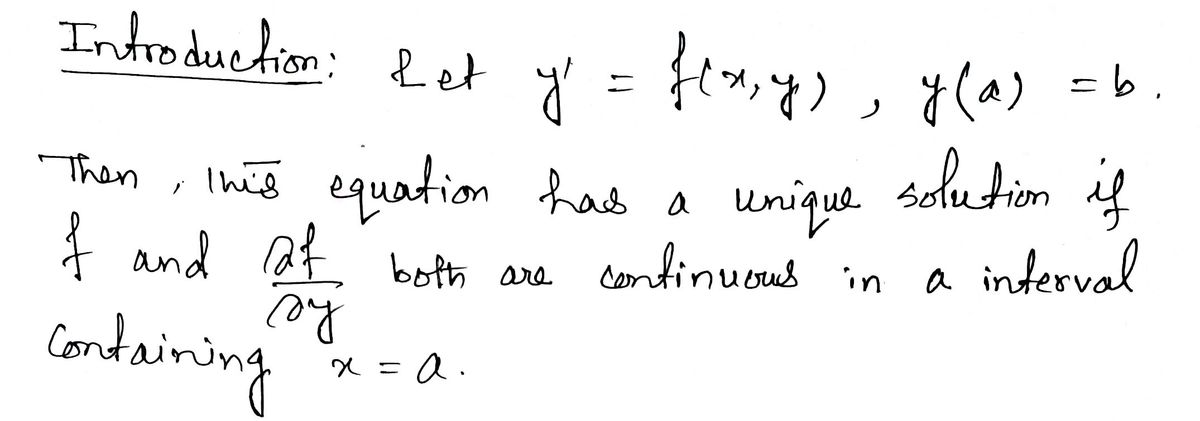 Introduction: Let y' = f(x, y) , y(a) = b .
Then , this equation has a unique solution if
f and ∂f/∂y both are continuous in a interval
containing x = a .